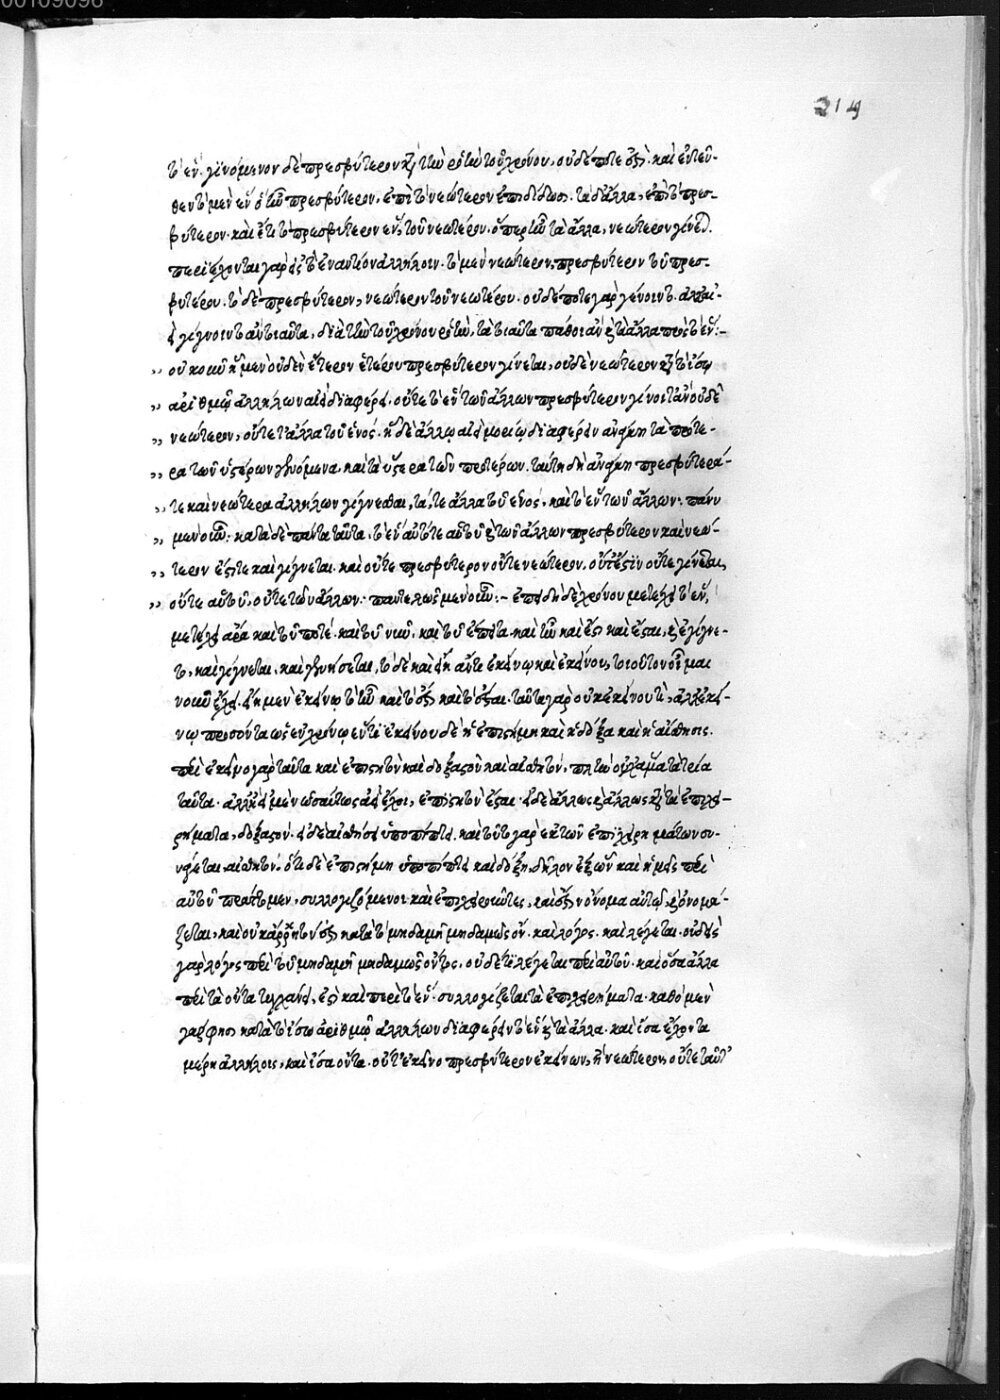 00109096
214
τὸ ἕν. γινόμενον δὲ πρεσβύτερον κατὰ τὴν ῥοὴν τοῦ χρόνου, οὐδέποτε ἐστὶ. καὶ ἐντεῦ-
θεν τὸ μὲν ἓν ὃ τῶν πρεσβύτερον, ἐπὶ τὸ νεώτερον ἐπιδίδωσι. τὰ δ' ἄλλα, ἐπὶ τὸ πρεσ-
βύτερον. καὶ ἔτι τὸ πρεσβύτερον ἓν, τοῦ νεωτέρου. ὅπερ ἦν τὰ ἄλλα, νεώτερον γίνεται.
περιέρχονται γὰρ εἰς τὸ ἐναντίον ἀλλήλοιν. τὸ μὲν νεώτερον, πρεσβύτερον τοῦ πρεσ-
βυτέρου. τὸ δὲ πρεσβύτερον, νεώτερον τοῦ νεωτέρου. οὐδέποτε γὰρ γένοιντο. ἀλλ'
εἰ γίγνοιντο ἂν τοιαῦτα, διὰ τὴν τοῦ χρόνου ῥοὴν, τὰ τοιαῦτα πάθοι ἂν καὶ τὰ ἄλλα πρὸς τὸ ἕν:–
οὐκοῦν ᾗ μὲν οὐδὲν ἕτερον ἑτέρου πρεσβύτερον γίνεται, οὐδὲ νεώτερον κατὰ τὸ ἴσῳ
ἀριθμῷ ἀλλήλων ἀεὶ διαφέρειν. οὔτε τὸ ἓν τῶν ἄλλων πρεσβύτερον γίνοιτ' ἂν οὐδὲ
νεώτερον, οὔτε τἄλλα τοῦ ἑνός. ᾗ δὲ ἄλλῳ ἀεὶ μορίῳ διαφέρειν ἀνάγκη τὰ πρότε-
ρα τῶν ὑστέρων γενόμενα, καὶ τὰ ὕστερα τῶν προτέρων. ταύτῃ δὴ ἀνάγκη πρεσβύτερά
τε καὶ νεώτερα ἀλλήλων γίγνεσθαι, τά, τε ἄλλα τοῦ ἑνὸς, καὶ τὸ ἓν τῶν ἄλλων: πάνυ
μὲν οὖν: κατὰ δὲ πάντα ταῦτα, τὸ ἓν αὐτό τε αὑτοῦ καὶ τῶν ἄλλων πρεσβύτερον καὶ νεώ-
τερον ἔστι τε καὶ γίγνεται. καὶ οὔτε πρεσβύτερον οὔτε νεώτερον, οὔτ' ἔστιν οὔτε γίνεται,
οὔτε αὑτοῦ, οὔτε τῶν ἄλλων: παντελῶς μὲν οὖν:– ἐπειδὴ δὲ χρόνου μετέχει τὸ ἓν,
μετέχει ἄρα καὶ τοῦ ποτέ. καὶ τοῦ νῦν, καὶ τοῦ ἔπειτα. καὶ ἦν καὶ ἔστι καὶ ἔσται, καὶ ἐγίγνε-
το, καὶ γίγνεται, καὶ γενήσεται, τὸ δὲ καὶ εἴη ἄν τι ἐκείνῳ καὶ ἐκείνου,
ἐκείνῳ τὸ ἦν καὶ τὸ ἐστὶ, καὶ τὸ ἔσται. ταῦτα γὰρ οὐκ ἐκείνου τι, ἀλλ' ἐκεί-
νῳ προσόντα ὡς ἐν χρόνῳ ἐκείνου δὲ ἡ ἐπιστήμη καὶ ἡ δόξα καὶ ἡ αἴσθησις.
περὶ ἐκεῖνο γὰρ ταῦτα καὶ ἐπιστητὸν καὶ δοξαστὸν καὶ αἰσθητόν, πλὴν οὐχ ἅμα τὰ τρία
ταῦτα. ἀλλ' εἰ μὲν ὡσαύτως ἀεὶ ἔχοι, ἐπιστητὸν ἔσται. εἰ δὲ ἄλλως καὶ ἄλλως κατὰ τὰ ἐπιχει-
ρήματα, δοξαστόν. εἰ δὲ αἰσθήσει ὑποπίπτει. καὶ τοῦτο γὰρ ἐκ τῶν ἐπιχειρημάτων συ-
νάγεται, αἰσθητόν. ὅτι δὲ ἐπιστήμῃ ὑποπίπτει καὶ δόξῃ, δῆλον ἐξ ὧν καὶ ἡμεῖς περὶ
αὐτοῦ πράττομεν, συλλογιζόμενοι καὶ ἐπιχειροῦντες, καὶ ἔστιν ὄνομα αὐτῷ, καὶ ὀνομά-
ζεται, καὶ οὐκ ἄρρητόν ἐστι κατὰ τὸ μηδαμῇ μηδαμῶς ὄν. καὶ λόγος. καὶ λέγεται. οὐδεὶς
γὰρ λόγος περὶ τοῦ μηδαμῇ μηδαμῶς ὄντος, οὐδέ τι λέγεται περὶ αὐτοῦ. καὶ ὅσα ἄλλα
περὶ τὰ ὄντα τυγχάνει, ἔστι καὶ περὶ τὸ ἕν. συλλογίζεται τὰ ἐπιχειρήματα. καθὸ μὲν
γάρ φησι κατὰ τὸ ἴσῳ ἀριθμῷ ἀλλήλων διαφέρειν τὸ ἓν καὶ τὰ ἄλλα. καὶ ἴσα ἔχοντα
μέρη ἀλλήλοις, καὶ ἴσα ὄντα. οὔτ' ἐκεῖνο πρεσβύτερον ἐκείνων, ἢ νεώτερον, οὔτε ταῦτ'